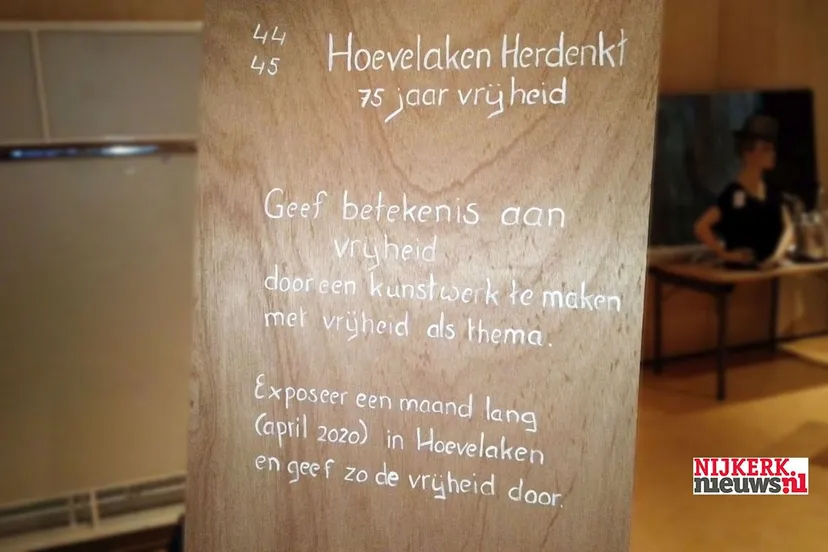 44
45
Hoevelaken Herdenkt
75 jaar vrijheid
Geef betekenis aan
vrijheid
door een kunstwerk te maken
met vrijheid als thema.
Exposeer een maand lang
(april 2020) in Hoevelaken
en geef zo de vrijheid door.
NIJKERK
nieuws.nl